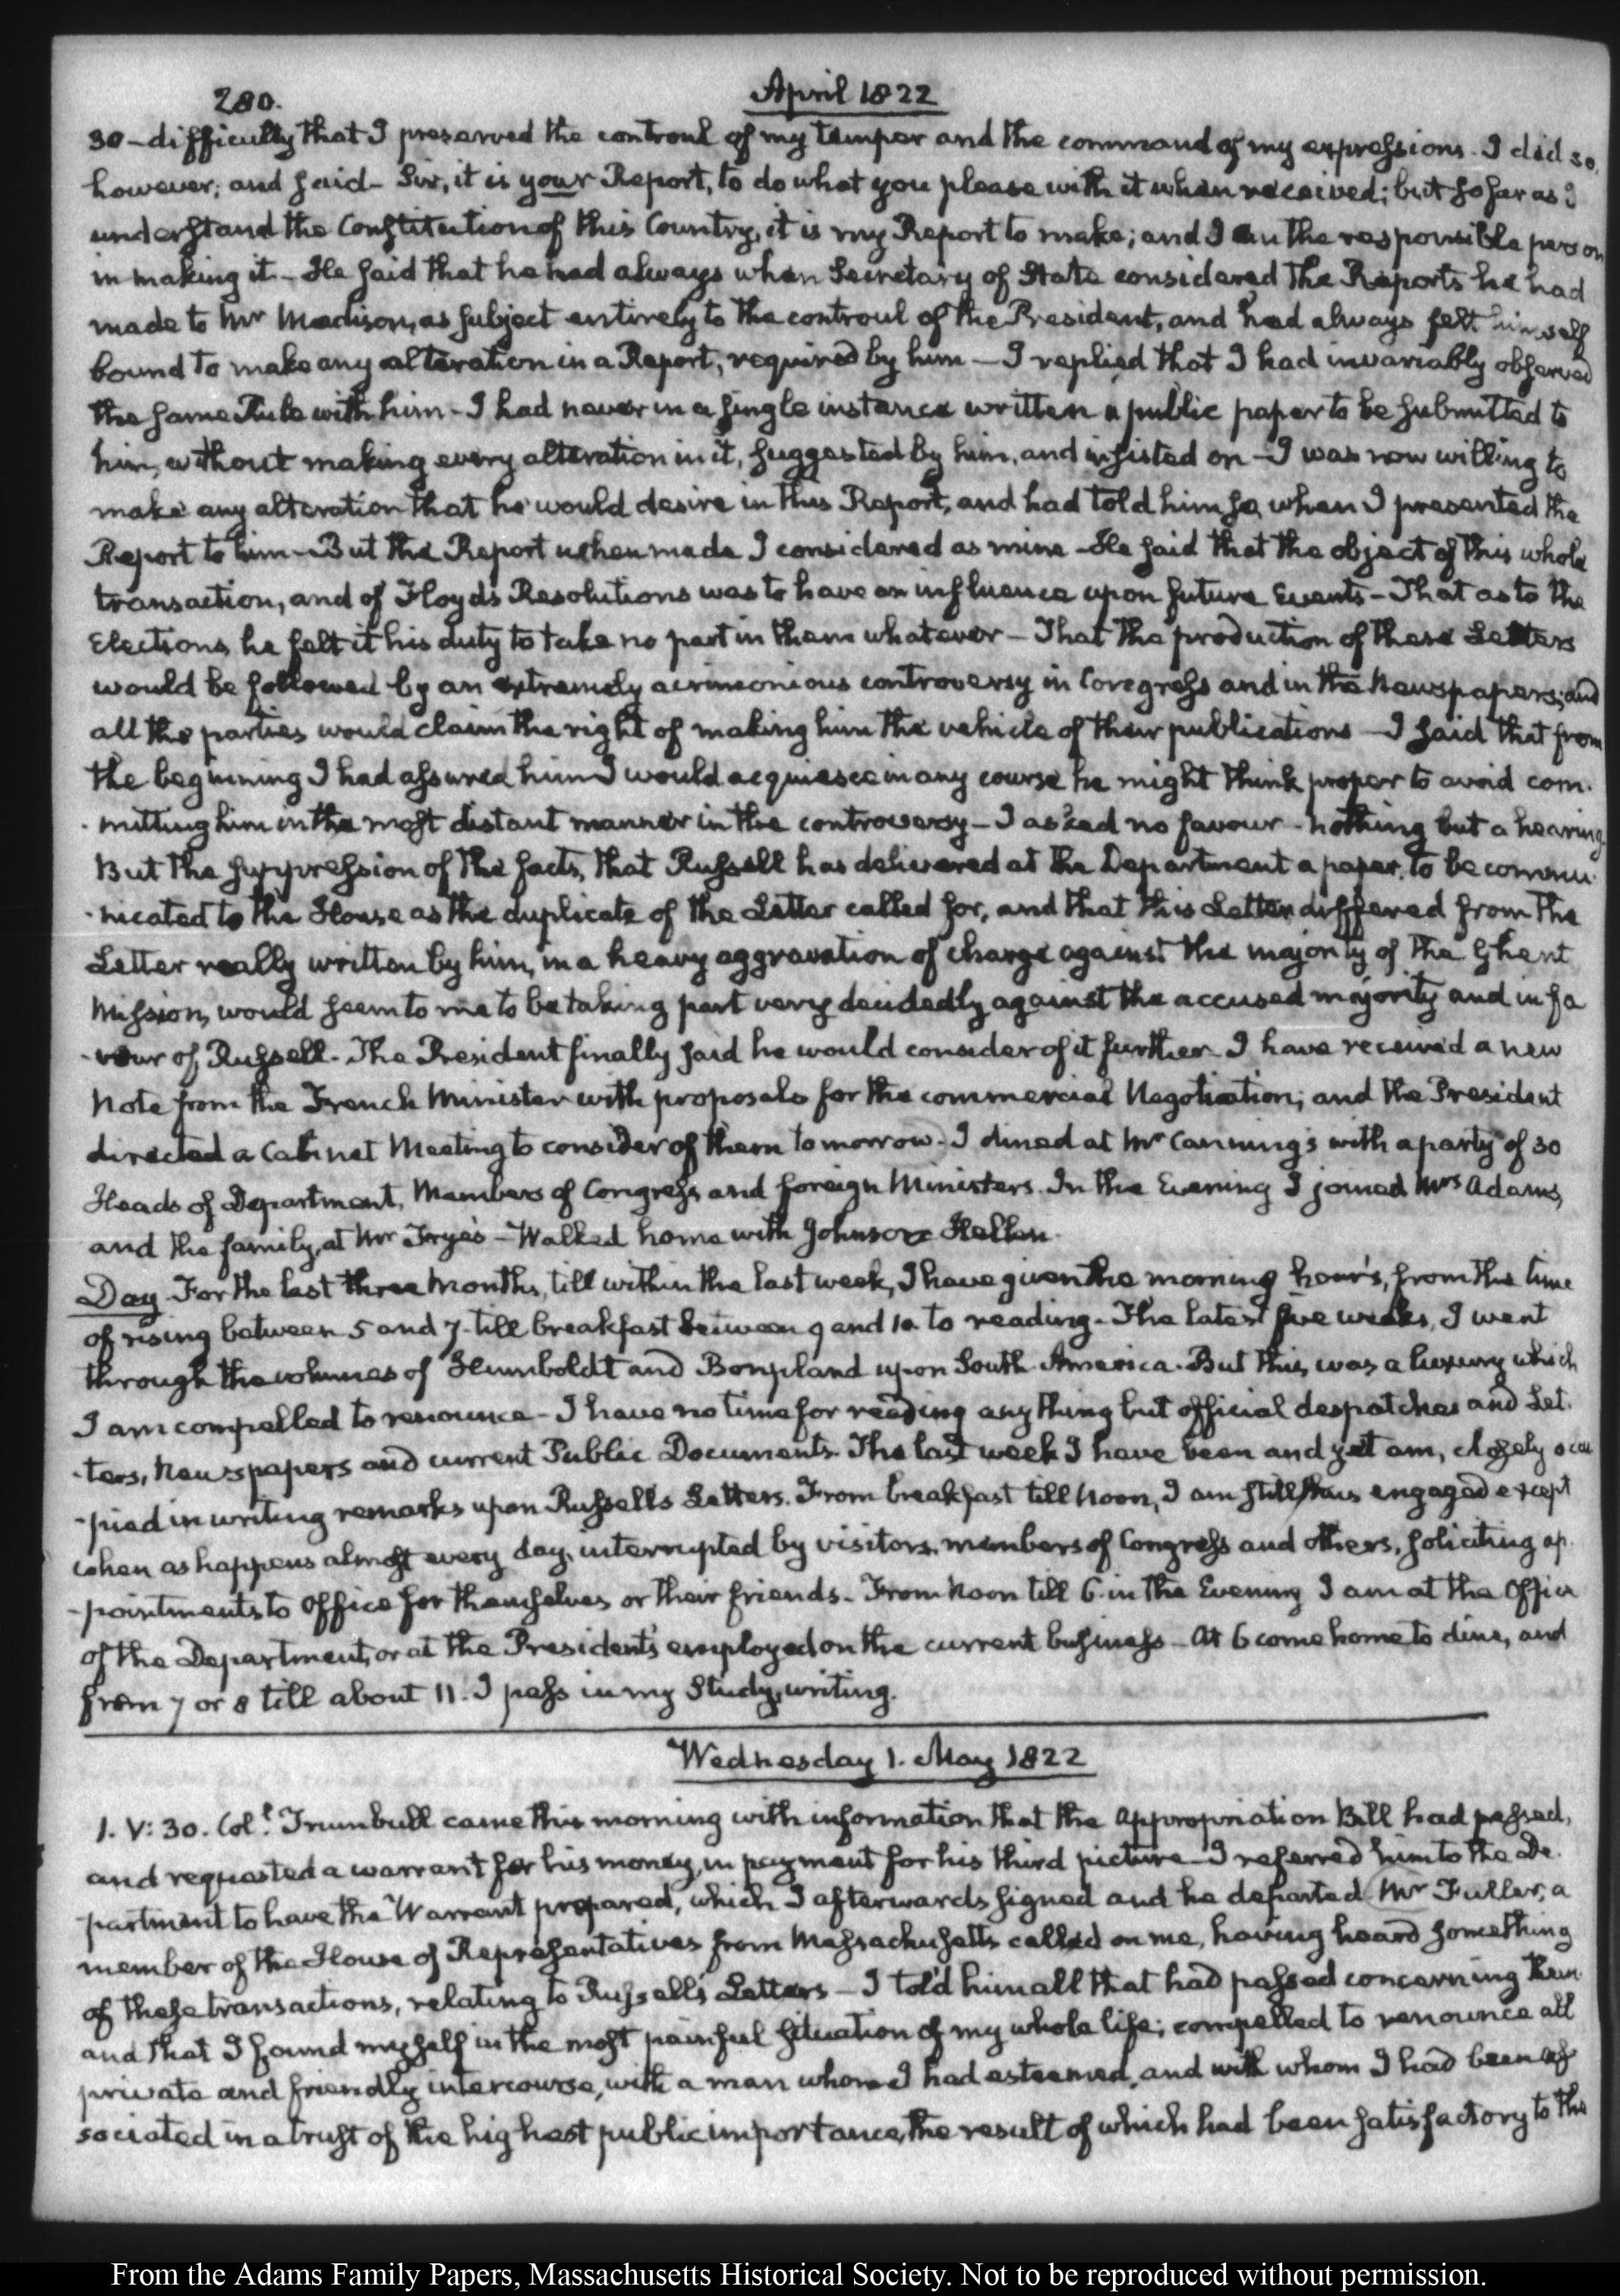 280.
April 1822
30 - difficulty that I preserved the controul of my temper and the command of my expressions. I did so,
however; and said - Sir, it is your Report, to do what you please with it when received; but so far as I
understand the Constitution of this Country, it is my Report to make; and I am the responsible person
in making it - He said that he had always when Secretary of State considered the Reports he had
made to Mr Madison, as subject entirely to the controul of the President, and had always felt himself
bound to make any alteration in a Report, required by him - I replied that I had invariably observed
the same Rule with him - I had never in a single instance written a public paper to be submitted to
him, without making every alteration in it, suggested by him, and insisted on - I was now willing to
make any alteration that he would desire in this Report, and had told him so, when I presented the
Report to him - But the Report when made I considered as mine - He said that the object of this whole
transaction, and of Floyd's Resolutions was to have an influence upon future Events - That as to the
Elections he felt it his duty to take no part in them whatever - That the production of these Letters
would be followed by an extremely acrimonious controversy in Congress and in the Newspapers; and
all the parties would claim the right of making him the vehicle of their publications - I said that from
the beginning I had assured him I would acquiesce in any course he might think proper to avoid com-
-mitting him in the most distant manner in the controversy - I asked no favour - nothing but a hearing.
But the suppression of the facts, that Russell has delivered at the Department a paper, to be commu-
-nicated to the House as the duplicate of the Letter called for, and that this Letter differed from the
Letter really written by him, in a heavy aggravation of charge against the majority of the Ghent
Mission, would seem to me to be taking part very decidedly against the accused majority and in fa
-vour of Russell. The President finally said he would consider of it further. I have received a new
Note from the French Minister with proposals for the commercial Negotiation; and the President
directed a Cabinet Meeting to consider of them tomorrow. I dined at Mr Canning's with a party of 30
Heads of Department, Members of Congress and foreign Ministers. In the Evening I joined Mrs Adams,
and the family, at Mr Frye's - Walked home with Johnson Hellen.
Day. For the last three Months, till within the last week, I have given the morning hours, from the time
of rising between 5 and 7. till breakfast between 9 and 10. to reading. The latest five weeks, I went
through the volumes of Humboldt and Bonpland upon South America. But this, was a luxury which
I am compelled to renounce - I have no time for reading any thing but official despatches and Let-
-ters, Newspapers and current Public Documents. The last week I have been and yet am, closely occu
-pied in writing remarks upon Russell's Letters. From breakfast till Noon, I am still thus engaged except
when as happens almost every day, interrupted by visitors, members of Congress and others, soliciting ap-
-pointments to Office for themselves or their friends. From Noon till 6. in the Evening I am at the Office
of the Department, or at the President's employed on the current business - At 6 come home to dine, and
from 7 or 8 till about 11. I pass in my Study, writing.
Wednesday 1. May 1822
1. V: 30. Coll. Trumbull came this morning with information that the Appropriation Bill had passed,
and requested a warrant for his money, in payment for his third picture - I referred him to the De-
-partment to have the Warrant prepared, which I afterwards signed and he departed. Mr Fuller, a
member of the House of Representatives from Massachusetts called on me, having heard something
of these transactions, relating to Russell's Letters - I told him all that had passed concerning them
and that I found myself in the most painful situation of my whole life; compelled to renounce all
private and friendly intercourse, with a man whom I had esteemed, and with whom I had been as
sociated in a trust of the highest public importance, the result of which had been satisfactory to the
From the Adams Family Papers, Massachusetts Historical Society. Not to be reproduced without permission.